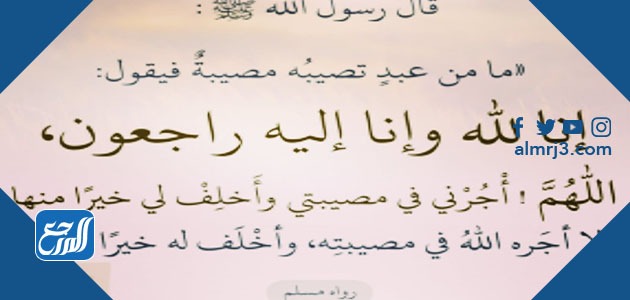 قال رسول الله ﷺ :
«ما من عبدٍ تصيبُه مصيبةٌ فيقول:
إنا لله وإنا إليه راجعون،
اللهُمَّ ! أْجُرْني في مصيبتي وأَخلِفْ لي خيرًا منها
أجَره اللهُ في مصيبتِه، وأخْلَف له خيرًا
رواه مسلم
almrj3.com
المرجع